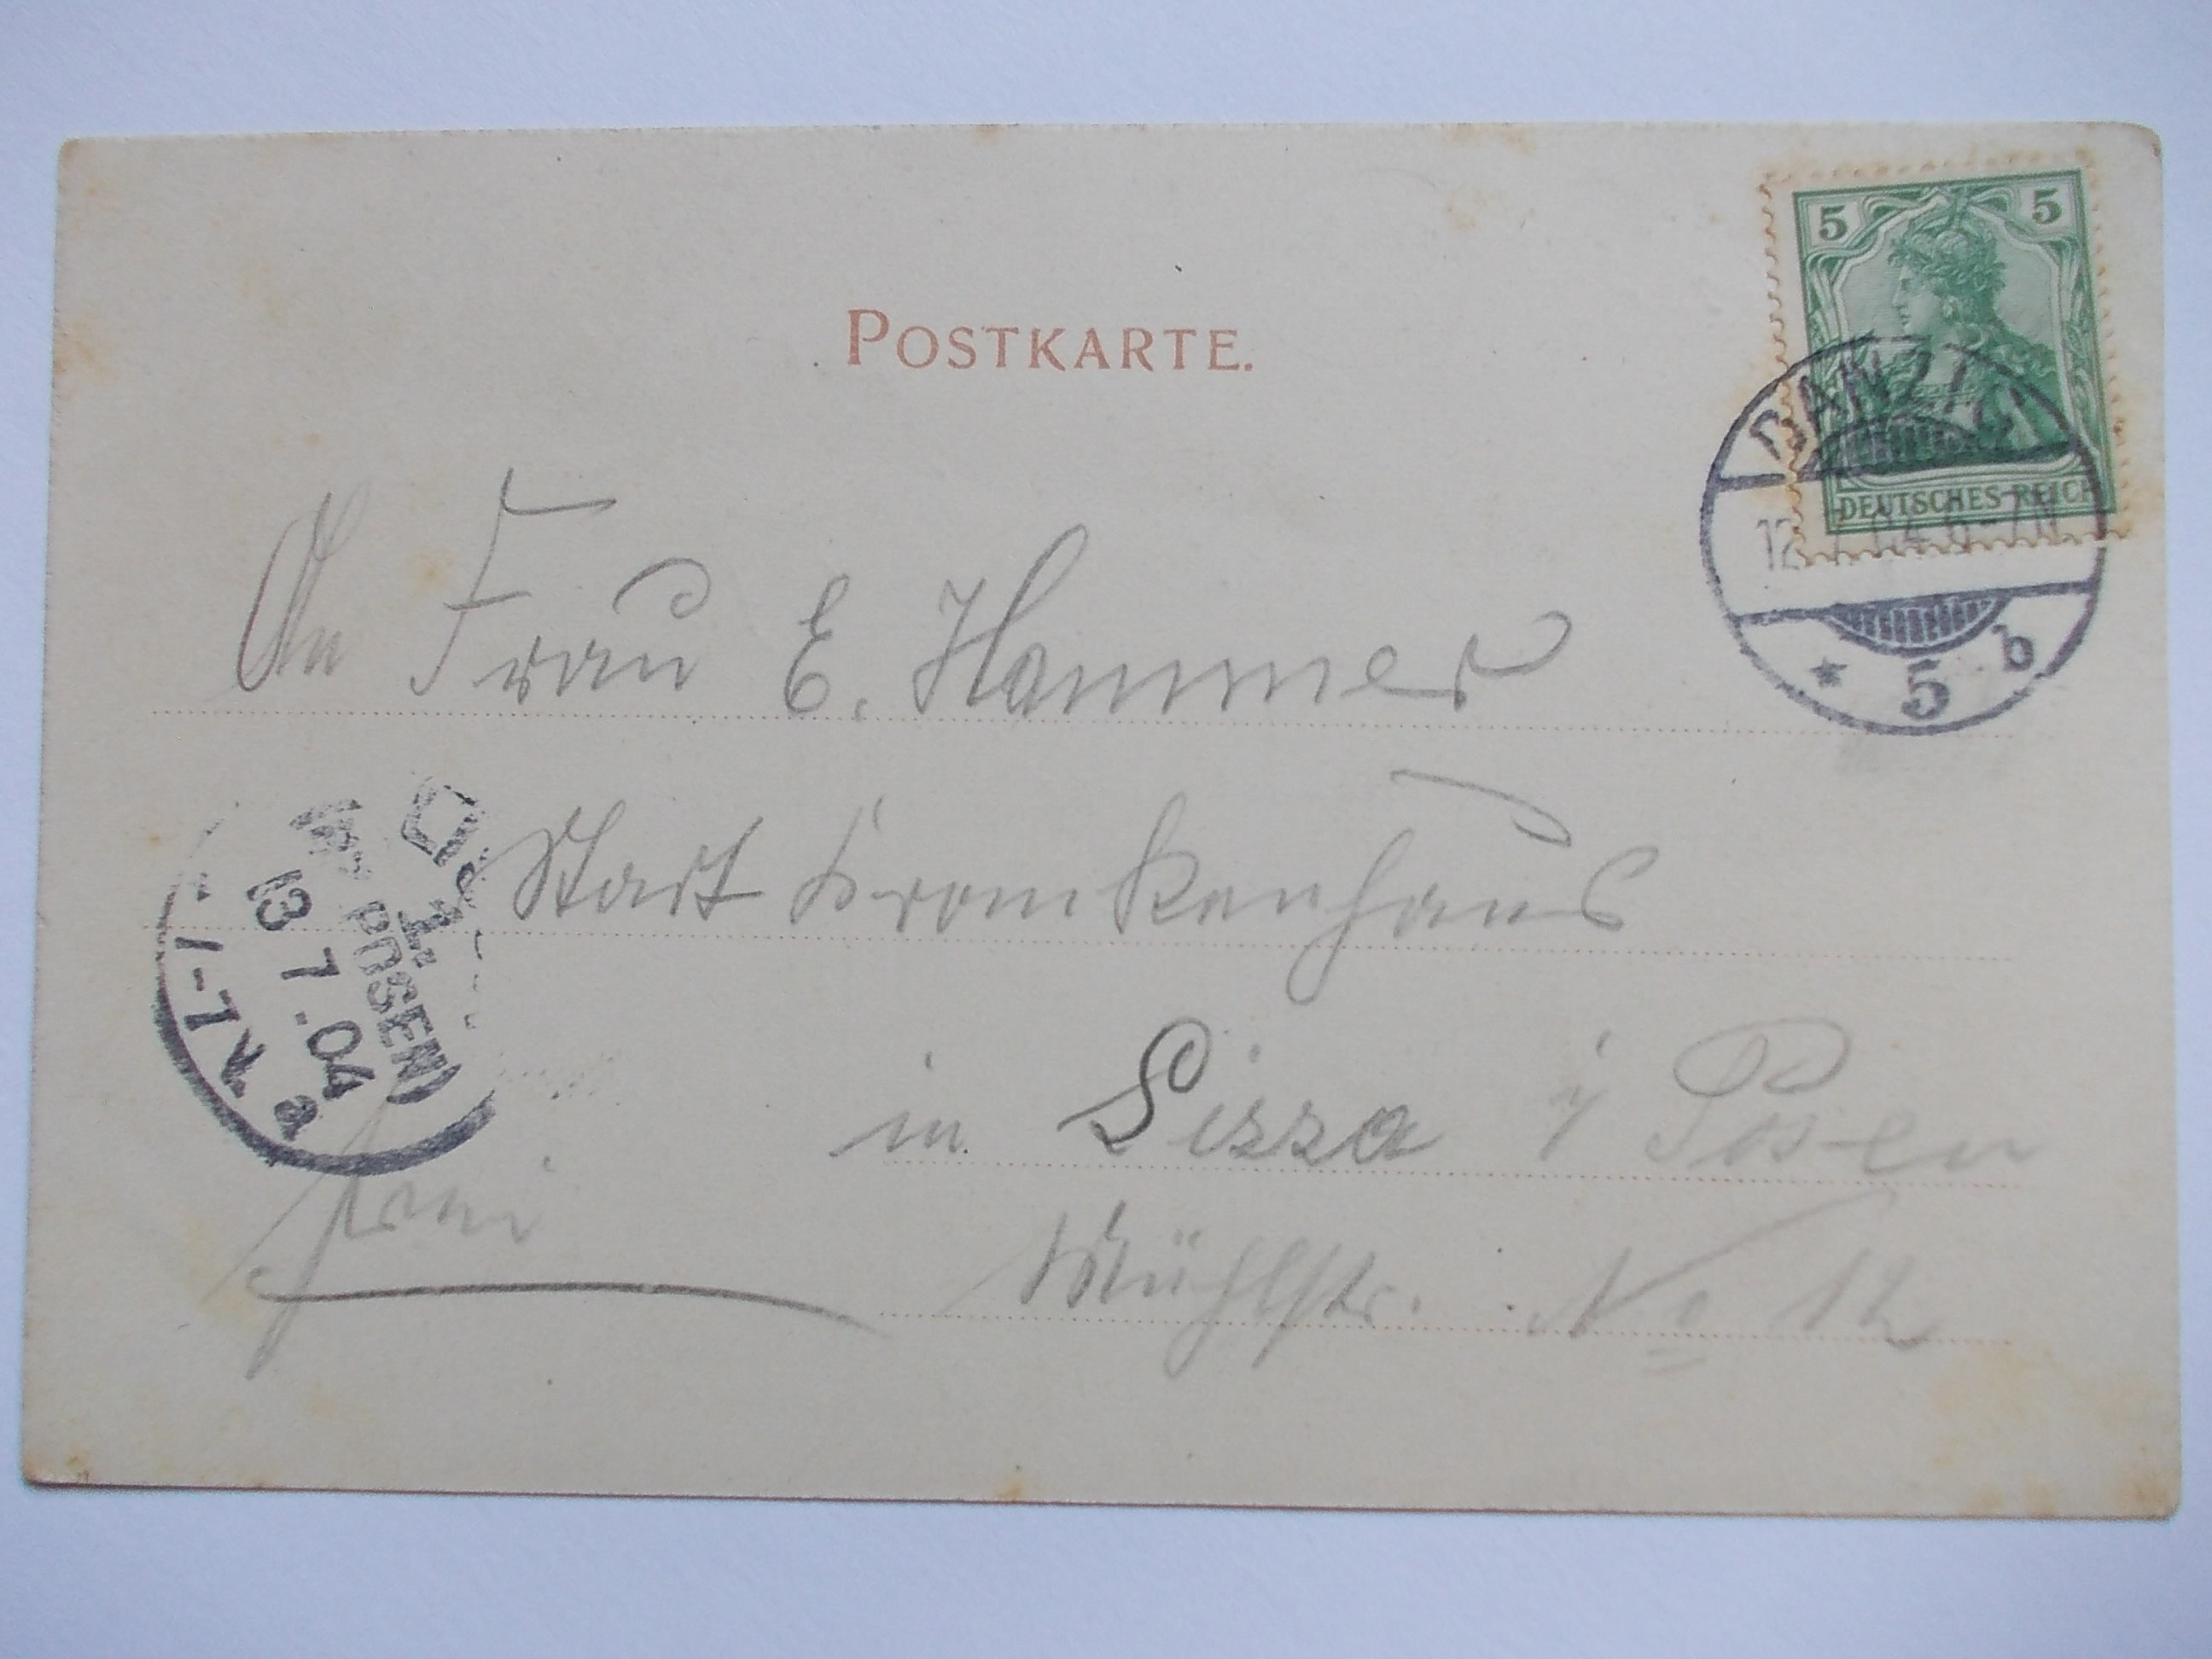 POSTKARTE.
5 5
DEUTSCHES REICH
DANZIG
12 7 04 6-7N
* 5 b
An Frau E. Hammer
Stadt Krankenhaus
in Lissa i Posen
frei
Mühlstr. No 12
(BZ. POSEN)
1.
13 7 .04
7-1V.
a